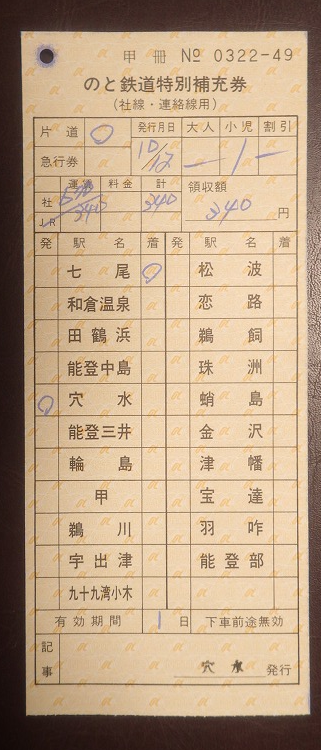 甲冊 № 0322-49
のと鉄道特別補充券
(社線・連絡線用)
片道 ○ 発行月日 大人 小児 割引
急行券 10/12 一 1 一
運賃 料金 計 領収額
社 340 340 340円
JR
発 駅名 着 発 駅名 着
七尾 ○ 松波
和倉温泉 恋路
田鶴浜 鵜飼
能登中島 珠洲
○ 穴水 蛸島
能登三井 金沢
輪島 津幡
甲 宝達
鵜川 羽咋
宇出津 能登部
九十九湾小木
有効期間 1日 下車前途無効
記事 穴水 発行